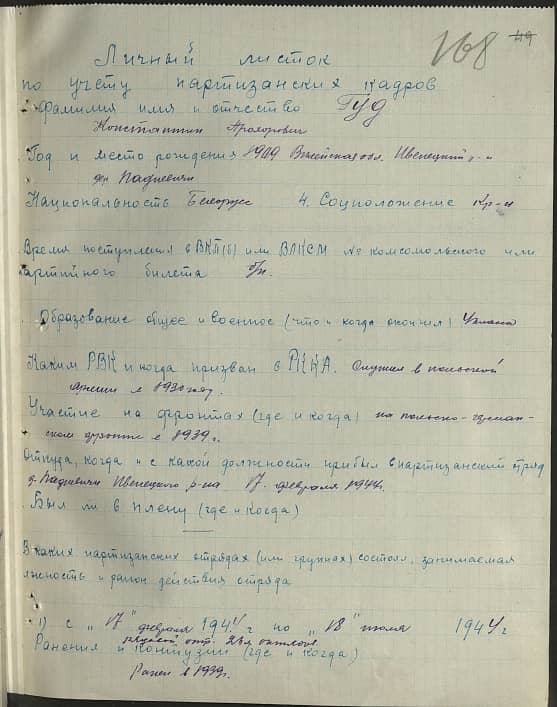 168 49
Личный листок
по учету партизанских кадров
Фамилия имя и отчество Гуд
Константин Прохорович
Год и место рождения 1909 Вилейская обл. Ивенецкий р-н
дер. Падневичи
Национальность Белорус 4. Соцположение кр-н
Время поступления в ВКП(б) или ВЛКСМ № комсомольского или
артийного билета б/п.
Образование общее и военное (что и когда окончил)
Каким РВК и когда призван в РККА. Служил в польской
армии с 1930 году.
Участие на фронтах (где и когда) на польско-герман-
ском фронте с 1939 г.
Откуда, когда и с какой должности прибыл в партизанский отряд
д. Падневичи Ивенецкого р-на 17 февраля 1944 г.
Был ли в плену (где и когда)
В каких партизанских отрядах (или группах) состоял, занимаемая
лжность и район действия отряда
1) с "17" февраля 1944 г по "18" июля 1944 г
рядовой отр.
Ранения и контузии (где и когда)
Ранен в 1939 г.